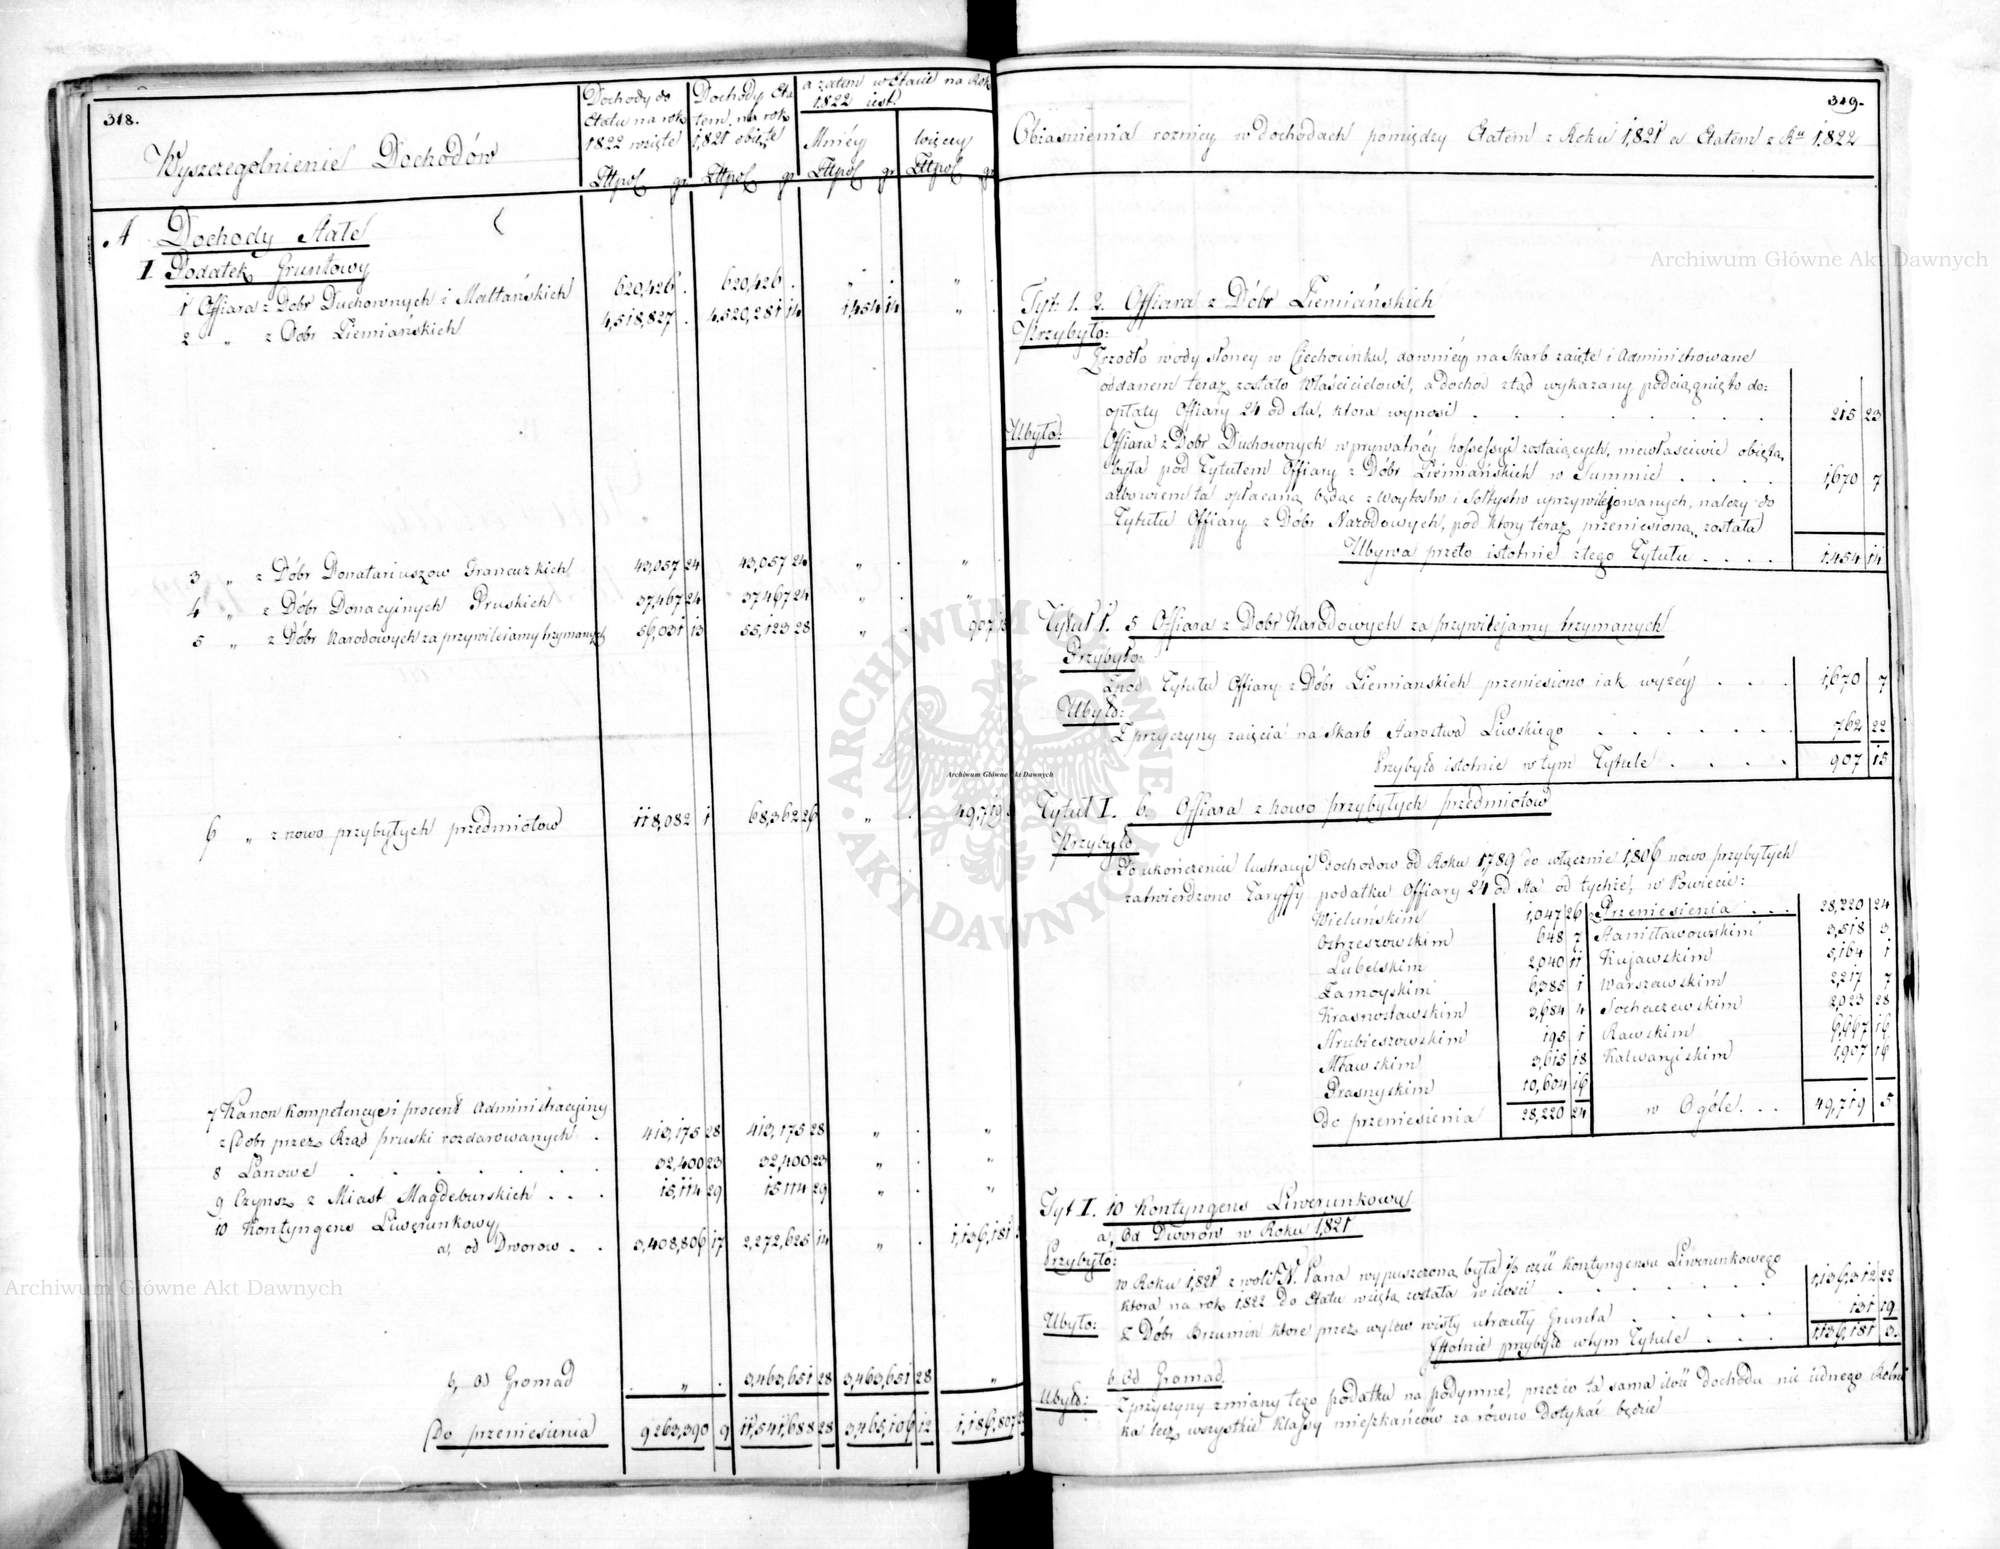 318.
Wyszczegolnienie Dochodów
Dochody do Etatu na rok 1822 wzięte
Złtpol gr
Dochody Eta tem na rok 1,821 obięte
Złtpol gr
a zatem w Etacie na Rok 1822 iest
Mniéy
Złtpol gr
więcey
Złtpol gr
A Dochody Stałe
I Podatek Gruntowy
1 Offiara z Dobr Duchownych i Maltańskich 620,426 . 620,426 . " . " .
2 " z Dobr Ziemiańskich 4,518,827 . 4,520,281 14 1,454 14 " .
3 " z Dóbr Donatariuszow Francuzkich 43,057 24 43,057 24 " . "
4 " z Dóbr Donacyinych Pruskich 37,467 24 37,467 24 " . "
5 " z Dóbr Narodowych za przywileiamy trzymanych 56,031 13 55,123 28 " . 907 15
6 " z nowo przybyłych przedmiotow 118,082 1 68,362 26 " . 49,719 5
7 Kanon Kompetencye i procent Administracyiny
z Dobr przez Rząd pruski rozdarowanych . 413,175 28 413,175 28 " . "
8 Łanowe . . . . . . 32,400 23 32,400 23 " . "
9 Czynsz z Miast Magdeburskich . . . 15,114 29 15,114 29 " . "
10 Kontyngens Liwerunkowy
a, od Dworow . . 3,408,806 17 2,272,625 14 " . 1,136,181 3
b, od Gromad . " . 3,463,651 28 3,463,651 28 "
Do przeniesienia 9,263,390 9 11,541,688 28 3,465,106 12 1,186,807 23
349.
Obiasnienia roznicy w dochodach pomiędzy Etatem z Roku 1,821 a Etatem z Ru 1822
Tyt: 1. 2. Offiara z Dóbr Ziemiańskich
Przybyło:
Zrzodło wody słoney w Ciechocinku, dawniéy na Skarb zaięte i Administrowane
oddanem teraz zostało Właścicielowi, a dochod ztąd wykazany podciągnięto do
opłaty Offiary 24 od sta, ktora wynosi . . . . . . . 215 23
Ubyło:
Offiara z Dobr Duchownych w prywatnéy possessyi zostaiących, niewłaściwie obięta
była pod Tytułem Offiary z Dóbr Ziemiańskich w Summie . . . . 1,670 7
albowiem ta opłacaną będąc z Woytostw i Sołtystw uprzywilejowanych, należy do
Tytułu Offiary z Dóbr Narodowych, pod ktory teraz przeniesioną została
Ubywa przeto istotnie z tego Tytułu . . . . 1,454 14
Tytuł 1. 5 Offiara z Dobr Narodowych za przywilejamy trzymanych
Przybyło:
Zpod Tytułu Offiary z Dóbr Ziemianskich przeniesiono iak wyżéy . . . 1,670 7
Ubyło:
Z przyczyny zaięcia na Skarb Starostwa Liwskiego . . . . . . 762 22
Przybyło istotnie w tym Tytule . . . . 907 15
Tytuł I. 6. Offiara z nowo przybyłych przedmiotow
Przybyło
Po ukończeniu lustracyi dochodow od Roku 1,789 do włącznie 1,806 nowo przybyłych
zatwierdzono Taryffy podatku Offiary 24 od sta od tychże, w Powiecie:
Wieluńskim 1,047 26 Przeniesienia . . . 28,220 24
Ostrzeszowskim 648 7 Stanisławowskim 3,518 3
Lubelskim 2,040 11 Kujawskim 5,164 1
Zamoyskim 6,385 1 Warszawskim 2,217 7
Krasnostawskim 3,684 4 Sochaczewskim 2,023 28
Hrubieszowskim 195 1 Rawskim 6,667 16
Mławskim 3,615 18 Kalwaryiskim 1,907 16
Prasnyskim 10,604 16
Do przeniesienia 28,220 24 w Ogóle . . . 49,719 5
Tyt I. 10 Kontyngens Liwerunkowy
a, Od Dworów w Roku 1,821
Przybyło:
w Roku 1,821 z woli N. Pana wypuszczoną była ⅓ część Kontyngensu Liwerunkowego
ktora na rok 1822 do Etatu wzięta została w ilości . . . . . 1,136,312 22
Ubyło:
Z Dóbr Brzumin ktore przez wylew wisły utraciły Grunta . . . . . 131 19
Istotnie przybyło w tym Tytule . . . 1,136,181 3.
b. Od Gromad
Ubyło:
Z przyczyny zmiany tego podatku na podymne, przeco ta sama ilość dochodu nie iednego Rolni
ka lecz wszystkie klassy mieszkańców za równo dotykać będzie
Archiwum Główne Akt Dawnych
Archiwum Główne Akt Dawnych
Archiwum Główne Akt Dawnych
ARCHIWUM GŁÓWNE AKT DAWNYCH